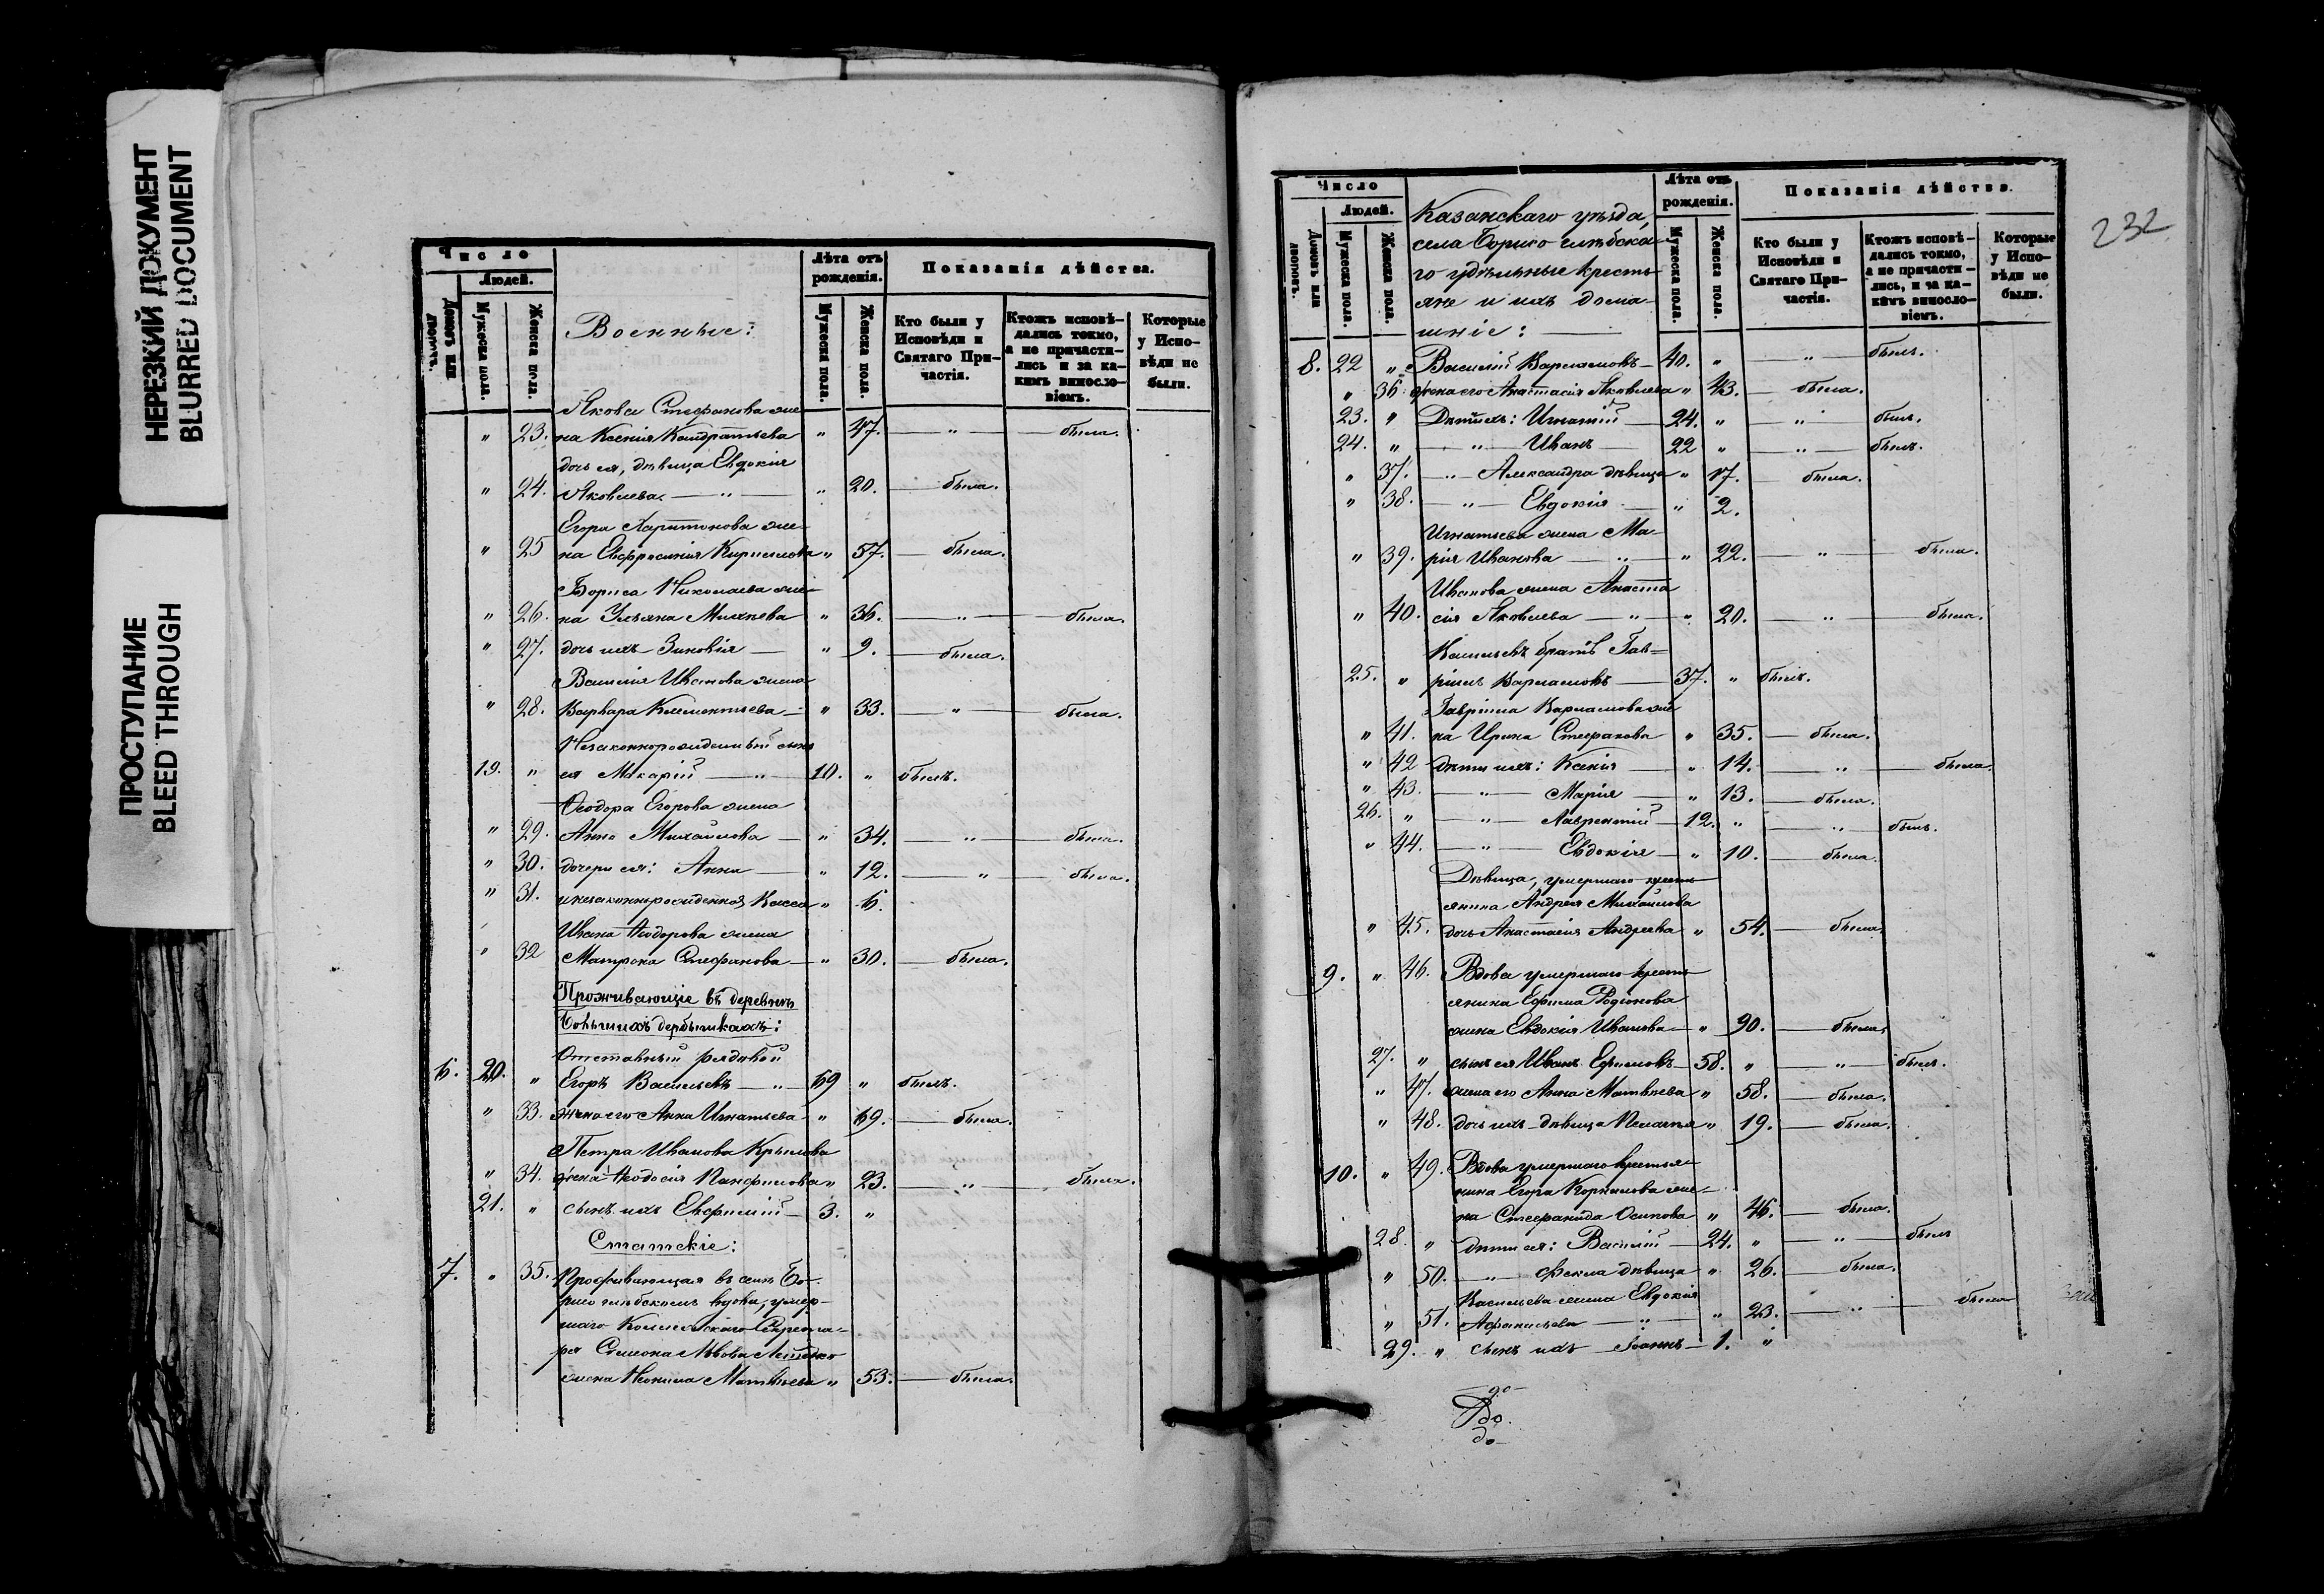 НЕРЕЗКИЙ ДОКУМЕНТ
BLURRED DOCUMENT
ПРОСТУПАНИЕ
BLEED THROUGH
Число
Людей.
Домовъ или дворовъ.
Мужеска пола.
Женска пола.
Военные:
Лѣта отъ рожденія.
Мужеска пола.
Женска пола.
Показанія дѣйства.
Кто были у Исповѣди и Святаго При-
частія.
Ктожъ исповѣ-
дались токмо,
а не причасти-
лись и за ка-
кимъ виносло-
віемъ.
Которые
у Испо-
вѣди не
были.
Якова Стефанова же-
" 23. на Ксенія Кондратьева " 47. — " — была.
дочь ея, дѣвица Евдокія
" 24. Яковлева — " — " 20. — была.
Егора Харитонова же-
" 25 на Евфросинія Кириллова " 57. — была.
Бориса Николаева же-
" 26. на Ульяна Михѣева " 36. — " — была.
" 27. дочь ихъ Зиновія — " 9. — была.
Василія Иванова жена
" 28. Варвара Климентьева — " 33. — " — была.
Незаконнорожденный сынъ
19. " ея Макарій — " — 10. " былъ.
Ѳеодора Егорова жена
" 29. Анна Михайлова — " 34. — " — была.
" 30. дочери ея: Анна — " 12. — " — была.
" 31. и незаконнорожденная Васса " 6.
Ивана Ѳеодорова жена
" 32 Матрона Стефанова — " 30. — была.
Проживающіе въ деревнѣ
Большихъ Дербышкахъ:
Отставный рядовой
6. 20. " Егоръ Васильевъ — " 69 " былъ.
" 33. жена его Анна Игнатьева " 69. — была.
Петра Иванова Крылова
" 34. жена Ѳеодосія Панфилова " 23. — " — была.
21. " сынъ ихъ Евфимій — 3. "
Статскіе:
7. " 35. Проживающая въ селѣ Бо-
рисоглѣбскомъ вдова, умер-
шаго Коллежскаго Секрета-
ря Симеона Львова
жена Неонила Матвѣева " 53. — была.
232
Число
Людей.
Домовъ или дворовъ.
Мужеска пола.
Женска пола.
Казанскаго уѣзда,
села Борисоглѣбска-
го удѣльные кресть-
яне и ихъ дома-
шніе: —
Лѣта отъ рожденія.
Мужеска пола.
Женска пола.
Показанія дѣйства.
Кто были у
Исповѣди и
Святаго При-
частія.
Ктожъ исповѣ-
дались токмо,
а не причасти-
лись, и за ка-
кимъ виносло-
віемъ.
Которые
у Испо-
вѣди не
были.
8. 22 " Василій Варламовъ — 40. " — " — былъ.
" 36 жена его Анастасія Яковлева " 43. — была.
23. " Дѣти ихъ: Игнатій — 24. " — " — былъ.
24. " — " — Иванъ — 22 " — " — былъ.
" 37. — " — Александра дѣвица " 17. — была.
" 38. — " — Евдокія — " 2.
Игнатьева жена Ма-
" 39. рія Иванова — " — " 22. — " — была.
Иванова жена Анаста
" 40. сія Яковлева — " — " 20. — " — была.
Васильевъ братъ Гав-
25. " ріилъ Варламовъ — 37. " былъ.
Гавріила Варламова же
" 41. на Ирина Стефанова " 35. — была.
" 42 дѣти ихъ: Ксенія — " 14. — " — была.
" 43. — " — Марія — " 13. — была.
26. " — " — Лаврентій — 12. " — " — былъ.
" 44. — " — Евдокія — " 10. — была.
Дѣвица, умершаго кресть-
янина Андрея Михайлова
" 45. дочь Анастасія Андреева " 54. — была.
9. " 46. Вдова умершаго кресть-
янина Ефима Родіонова
жена Евдокія Иванова — " 90. — была.
27. " сынъ ея Иванъ Ефимовъ — 58. " — " — былъ.
" 47. жена его Анна Матвѣева " 58. — была.
" 48. дочь ихъ дѣвица Пелагія " 19. — была.
10. " 49. Вдова умершаго крестья-
нина Егора Корнилова же-
на Стефанида Осипова " 46. — была.
28. " дѣти ея: Василій — 24. " — " — былъ
" 50. — " — Фекла дѣвица " 26. — была.
Васильева жена Евдокія
" 51. Афанасьева — " — " 23. — " — была
29. " сынъ ихъ Іоаннъ — 1. "